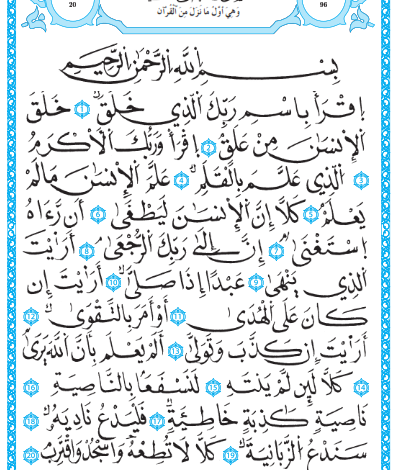 20
96
وَهِيَ أَوَّلُ مَا نَزَلَ مِنَ الْقُرْآنِ
بِسْمِ اللَّهِ الرَّحْمَٰنِ الرَّحِيمِ
اِقْرَأْ بِاسْمِ رَبِّكَ الَّذِي خَلَقَ 1 خَلَقَ
الْإِنسَٰنَ مِنْ عَلَقٍ 2 اِقْرَأْ وَرَبُّكَ الْأَكْرَمُ
3 الَّذِي عَلَّمَ بِالْقَلَمِ 4 عَلَّمَ الْإِنسَٰنَ مَا لَمْ
يَعْلَمْ 5 كَلَّا إِنَّ الْإِنسَٰنَ لَيَطْغَىٰ 6 أَن رَّءَاهُ
اسْتَغْنَىٰ 7 إِنَّ إِلَىٰ رَبِّكَ الرُّجْعَىٰ 8 أَرَأَيْتَ
الَّذِي يَنْهَىٰ 9 عَبْدًا إِذَا صَلَّىٰ 10 أَرَأَيْتَ إِن
كَانَ عَلَى الْهُدَىٰ 11 أَوْ أَمَرَ بِالتَّقْوَىٰ 12
أَرَأَيْتَ إِن كَذَّبَ وَتَوَلَّىٰ 13 أَلَمْ يَعْلَم بِأَنَّ اللَّهَ يَرَىٰ
14 كَلَّا لَئِن لَّمْ يَنتَهِ 15 لَنَسْفَعًا بِالنَّاصِيَةِ 16
نَاصِيَةٍ كَٰذِبَةٍ خَاطِئَةٍ 17 فَلْيَدْعُ نَادِيَهُۥ 18
سَنَدْعُ الزَّبَانِيَةَ 19 كَلَّا لَا تُطِعْهُ وَاسْجُدْ وَاقْتَرِب 20